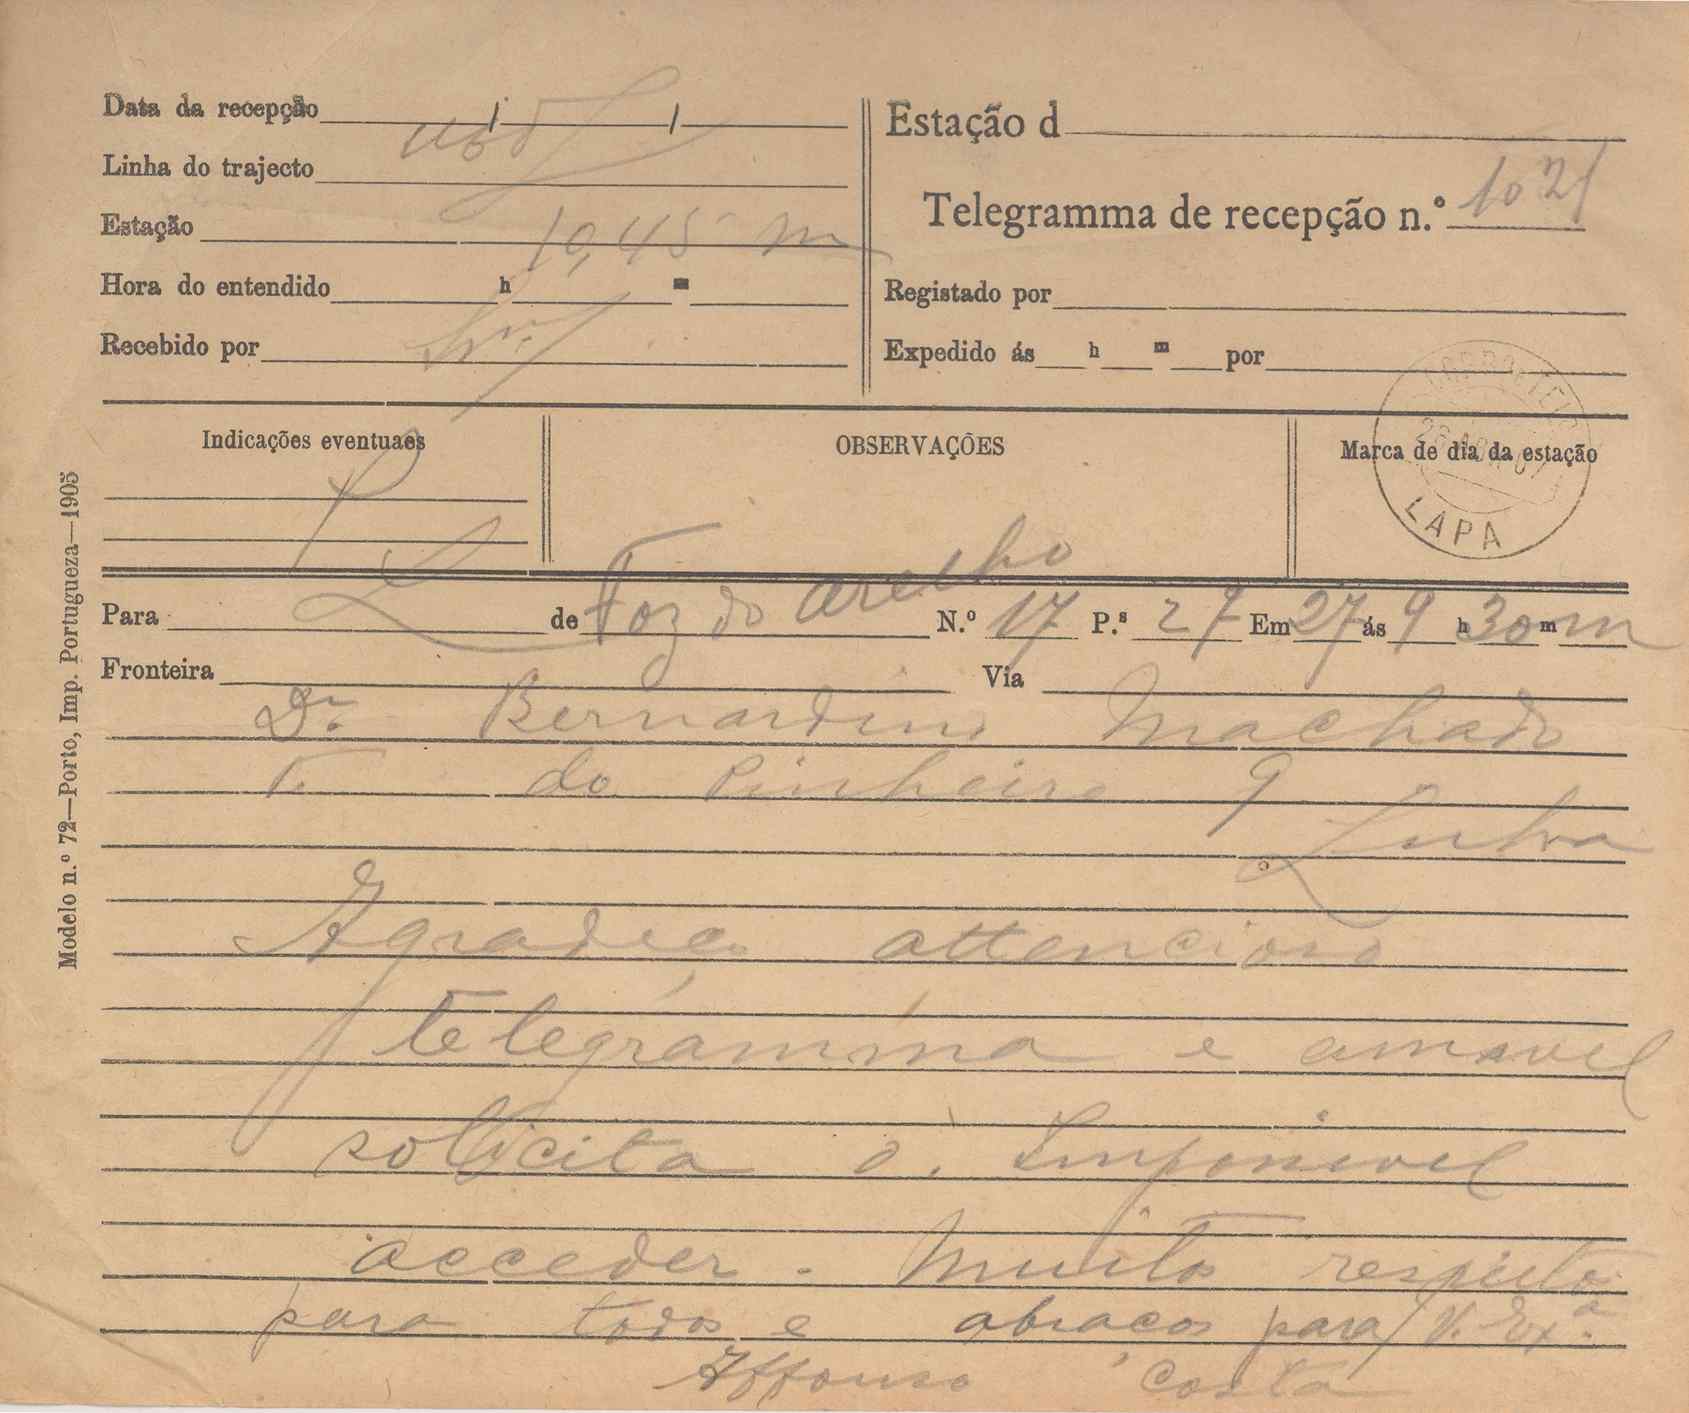 Data da recepção / /
Linha do trajecto
Estação 10,45 m
Hora do entendido h m
Recebido por
Estação d
Telegramma de recepção n.º 1021
Registado por
Expedido ás h m por
Indicações eventuaes
OBSERVAÇÕES
Marca de dia da estação
LAPA
Para L de Foz do arelho N.º 17 P.s 27 Em 27 ás 9 h 30 m m
Fronteira Via
Dr. Bernardino Machado
T. do Pinheiro 9
Lxbra
Agradeço attencioso
telegramma e amavel
solicita o. Impossivel
acceder. Muitos respeitos
para todos e abraços para V. Exª.
Affonso Costa
Modelo n.º 72—Porto, Imp. Portugueza—1905